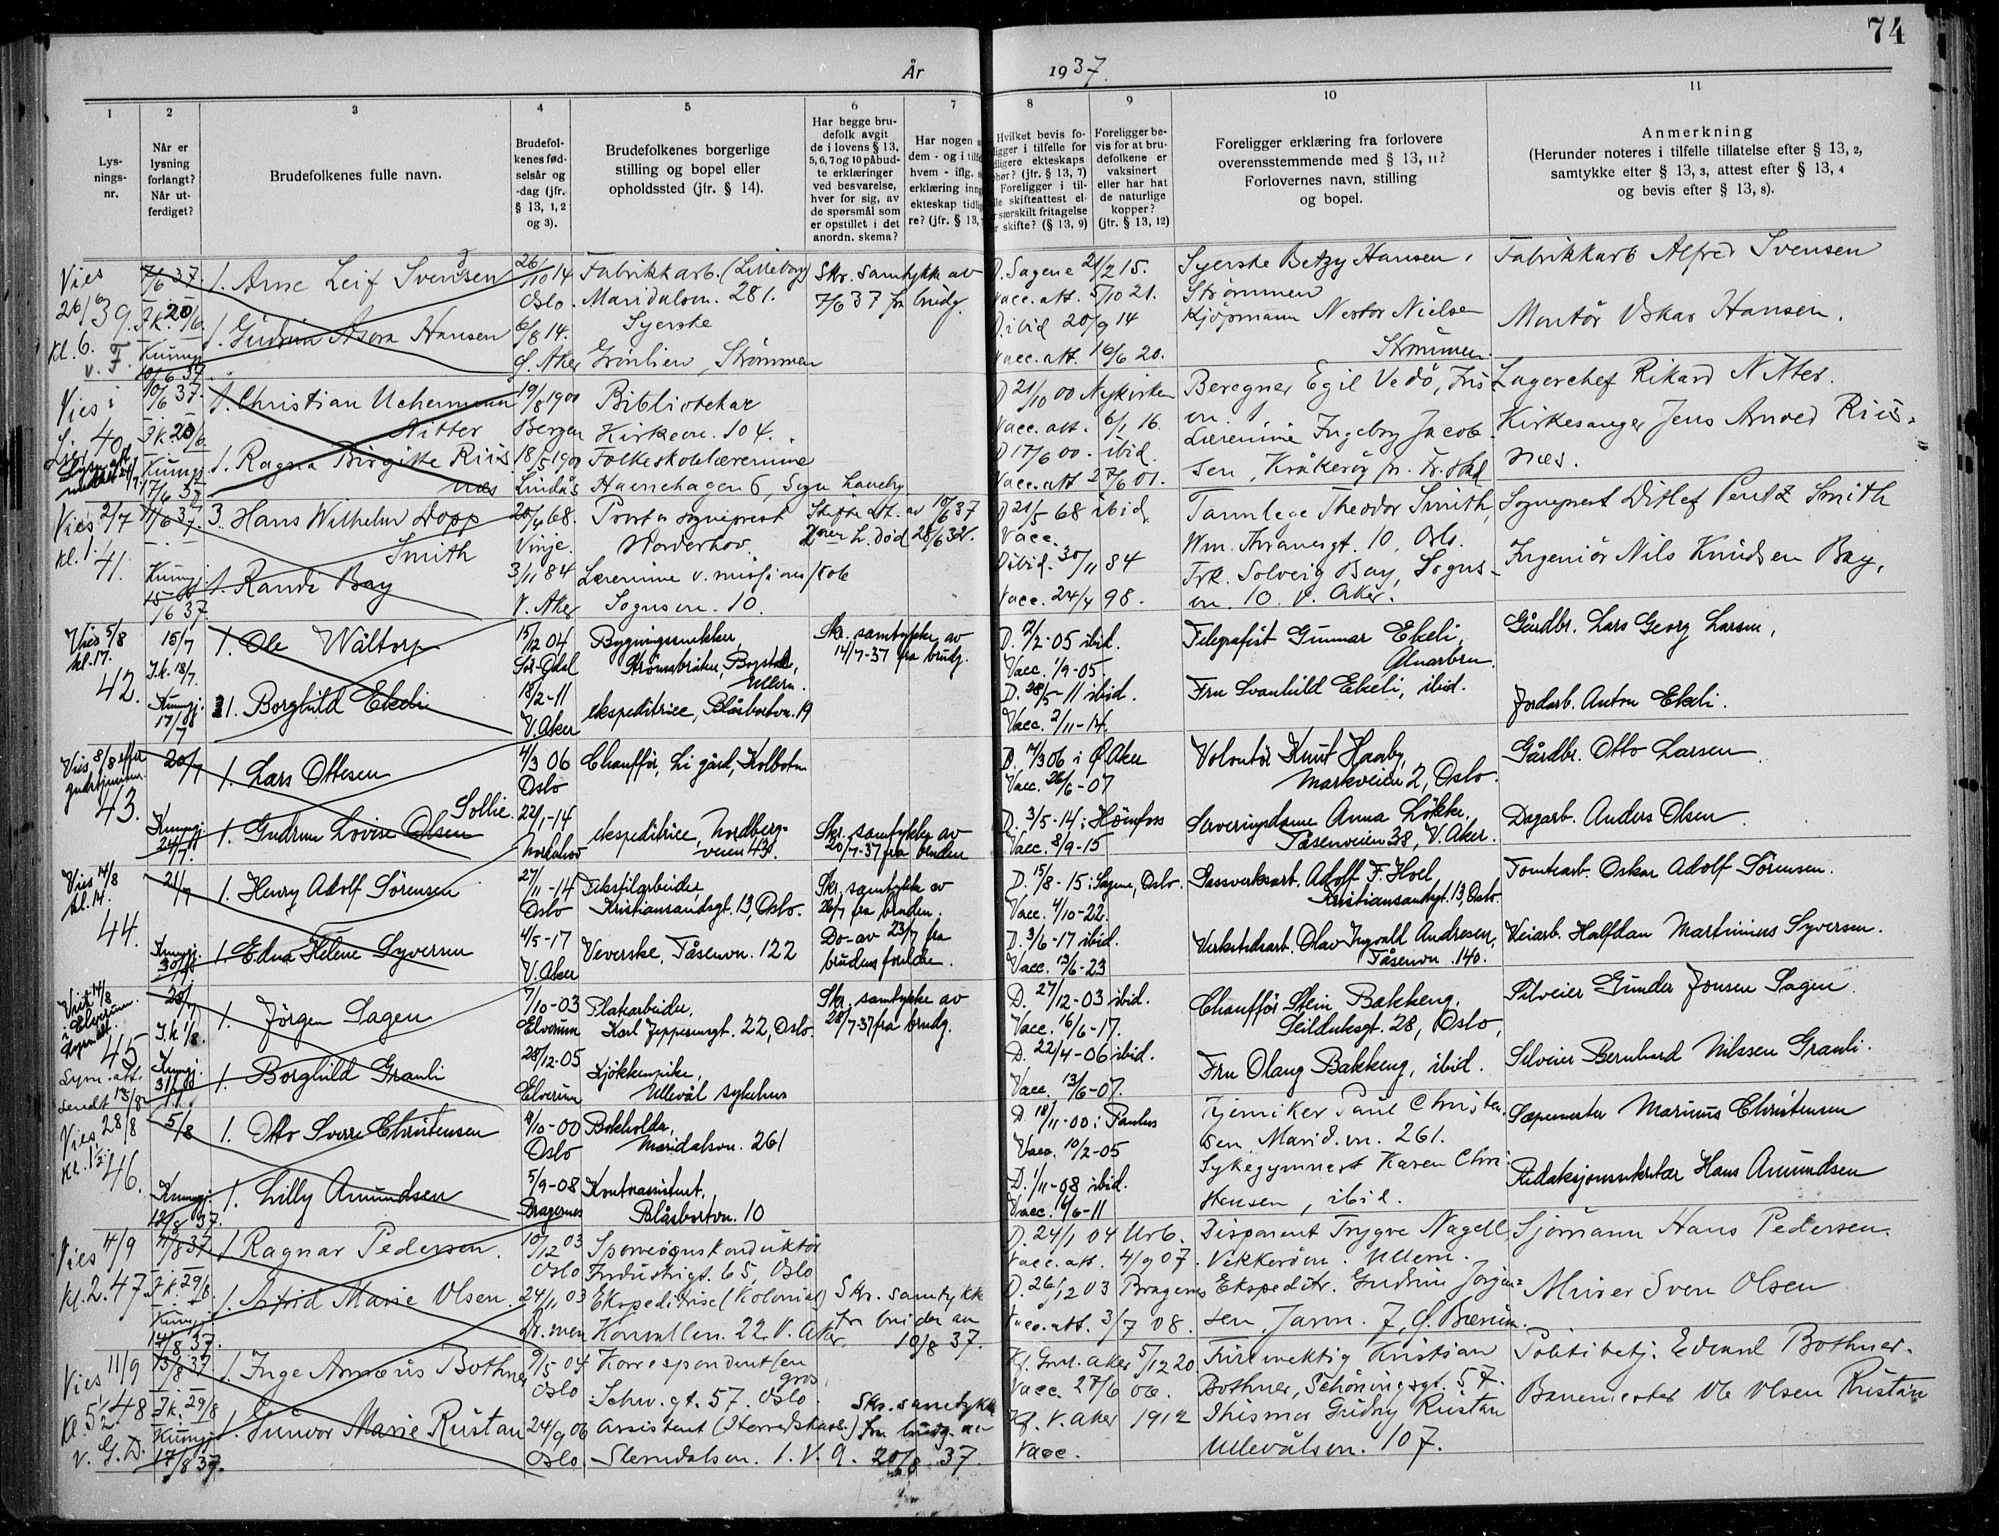 74
År 1937.
1 2 3 4 5 6 7 8 9 10 11
Lysningsnr.
Når er lysning forlangt? Når utferdiget?
Brudefolkenes fulle navn.
Brudefolkenes fødselsår og -dag (jfr. § 13, 1, 2 og 3).
Brudefolkenes borgerlige stilling og bopel eller opholdssted (jfr. § 14).
Har begge brudefolk avgit de i lovens § 13, 5, 6, 7 og 10 påbudte erklæringer ved besvarelse, hver for sig, av de spørsmål som er opstillet i det anordn. skema?
Har nogen
dem - og i tilf
hvem - iflg.
erklæring inng
ekteskap tidlig
re? (jfr. § 13,
Hvilket bevis fo-
ligger i tilfelle for
dligere ekteskaps
phør? (jfr. § 13, 7)
Foreligger i til-
lle skifteattest el-
r særskilt fritagelse
r skifte? (§ 13, 9)
Foreligger bevis for at brudefolkene er vaksinert eller har hat de naturlige kopper? (jfr. § 13, 12)
Foreligger erklæring fra forlovere overensstemmende med § 13, 11? Forlovernes navn, stilling og bopel.
Anmerkning (Herunder noteres i tilfelle tillatelse efter § 13, 2, samtykke efter § 13, 3, attest efter § 13, 4 og bevis efter § 13, 8).
Vies 26/6 39. kl. 6. v. F.
7/6 37. Kunngj. 10/6 37.
1. Arne Leif Svensen 26/10 14 Oslo. Fabrikkarb. (Lilleborg) Maridalsvn. 281. Skr. samtykke av 7/6 37 fra brudg. D. Sagene 21/2 15. Vacc. att. 5/10 21. Syerske Betzy Hansen, Strømmen Fabrikkarb Alfred Svensen
1. Gudrun Asora Hansen 6/8 14. Ø. Aker Syerske Grønlien, Strømmen D. ibid 20/9 14 Vacc. att. 16/6 20. Kjøpmann Nestor Nielse Strømmen. Montør Oskar Hansen.
Vies i 40.
10/6 37. Kunngj. 17/6 37
1. Christian Uchermann Nitter 19/8 1900 Bergen Bibliotekar Kirkevn. 104. D 21/10 00 Nykirken Vacc. att. 6/1 16. Beregner Egil Vedø, Lagerchef Rikard Nitter.
1. Ragna Birgitte Riisnæs 18/5 1900 Lindås Folkeskolelærerinne D 17/6 00 - ibid. Vacc. att 27/6 01. Lærerinne Ingeborg Jacobsen, Kråkerøy pr. Fr. stad Kirkesanger Jens Arved Riisnæs.
Vies 2/7 kl. 1. 41.
11/6 37. Kunngj. 15/6 37.
3. Hans Wilhelm Dopp Smith 20/4 68. Vinje. Prost & sogneprest Norderhov. Skifte att. av 10/6 37 2nen h. død 28/6 32. D 21/5 68 ibid. Vacc. Tannlege Theodor Smith, Wm. Thranesgt. 10, Oslo. Sogneprest Ditlef Pentz Smith
1. Randi Bay 3/11 84 V. Aker Lærerinne v. misjonsskole Sognsvn. 10. D ibid. 30/11 84 Vacc. 24/4 98. Frk. Solveig Bay, Sognsvn. 10. V. Aker. Ingeniør Nils Knudsen Bay.
Vies 5/8 kl. 17. 42.
15/7 I.k. 18/7. Kunngj. 17/7
1. Ole Wåltorp 15/12 04 Bygningssnekker, Ullern. Skr. samtykke av 14/7-37 fra brudg. D. 12/2-05 ibid. Vacc. 1/9-05. Telegrafist Gunnar Ekeli, Alnarbru. Gårdbr. Lars Georg Larsen,
1. Borghild Ekeli 18/2-11 V. Aker ekspeditrice, Blåsbortvn. 19 D. 28/5-11 ibid. Vacc. 2/11-14. Fru Svanhild Ekeli, ibid. Jordarb. Anton Ekeli.
Vies 8/8 efter gudstjenesten. 43.
20/7 Kunngj. 24/7.
1. Lars Ottesen 4/3 06 Oslo Chauffør, Li gård, Kolbotn D. 14/3 06 i Ø. Aker Vacc. 26/6-07 Volontør Knut Haaby, Markveien 2, Oslo. Gårdbr. Otto Larsen
1. Gudrun Lovise Olsen Sollie. 22/1-14 Norderhov ekspeditrice, Nordbergveien 43. Skr. samtykke av 20/7-37 fra bruden D. 3/5-14 i Hønefoss Vacc. 8/9-15 Serveringsdame Anna Løkke, Tåsenveien 38, V. Aker. Dagarb. Anders Olsen
Vies 14/8 kl. 14. 44.
21/7 Kunngj.
1. Henry Adolf Sørensen 27/11-14 Oslo Tekstilarbeider, Kristiansandsgt. 13, Oslo. Skr. samtykke av 26/7 fra bruden. D. 15/8-15 i Sagene, Oslo. Vacc. 4/10-22. Gassverksarb. Adolf F. Hoel, Kristiansandsgt. 13, Oslo. Tomtearb. Oskar Adolf Sørensen.
1. Edna Helene Syversen 4/5-17 V. Aker Veverske, Tåsenvn. 122 Do- av 23/7 fra brudens foreldre. D. 3/6-17 ibid. Vacc. 13/6-23 Verkstedsarb. Olav Ingvald Andresen, Tåsenvn. 140. Veiarb. Halfdan Martinius Syversen.
Viet 14/8 i Elverum. 45 Lysn. att. sendt 13/8
28/7 I.k. 1/8. Kunngj. 31/7
1. Jörgen Sagen 7/10-03 Elverum Platearbeider, Karl Jeppesensgt. 22, Oslo. Skr. samtykke av 28/7-37 fra brudg. D. 27/12-03 ibid. Vacc. 16/6-17. Chauffør Stein Bakkeng, Seilduksgt. 28, Oslo, Selveier Gunder Jonsen Sagen.
1. Borghild Granli 28/12-05 Elverum Kjökkenpike, Ullevål sykehus D. 22/4-06 ibid. Vacc. 13/6-07. Fru Olaug Bakkeng, ibid. Selveier Bernhard Nilssen Granli.
Vies 28/8 kl. 1½. 46.
5/8 Kunngj. 12/8 37.
1. Otto Sverre Christensen 9/10-00 Oslo Bokholder, Maridalsvn. 261 D. 18/11-00 i Paulus Vacc. 10/2-05 Kjemiker Paul Christensen Marid.vn. 261. Sæpemester Marinus Christensen
1. Lilly Amundsen 5/9-08 Bragernes Kontorassistent, Blåsbortvn. 10 D. 1/11-08 ibid. Vacc. 16/6-11 Sykegymnast Karen Christensen, ibid. Redaksjonssekretær Hans Amundsen
Vies 4/9 kl. 2. 47
11/8 37. I.k. 29/8. Kunngj. 14/8 37.
1. Ragnar Pedersen. 10/12 03 Oslo Sporveiskonduktør Industrigt. 65, Oslo D. 24/1 04 Urb. Vacc. att. 4/9 07. Disponent Trygve Nagell, Vekkerøvn. Ullern. Sjømann Hans Pedersen.
1. Astrid Marie Olsen. 24/11 03 Dr.men Ekspeditrise (Kolonial) Konvallvn. 22 V. Aker, Skr. samtykk fra bruden av 10/8 37. D. 26/12 03 Bragernes Vacc. att. 3/7 08. Ekspeditr. Gudrun Jørgensen, Jarvn. 7, Ø. Bærum. Murer Sven Olsen
Vies 11/9 kl 5½ 48 v. G.D.
13/8 37. I.k. 29/8 Kunngj. 17/8 37.
1. Inge Amæus Bothner 9/5 04 Oslo Korrespondent (en gros) Schw. gt. 57. Oslo. Kf. Grøl. aker 5/12 20 Vacc. 27/6 06. Fullmektig Kristian Bothner, Schøningsgt. 57. Politibetj. Edvard Bothner.
1. Gunvor Marie Rustan 24/9 06 Oslo. Assistent (Herredskass.) Slemdalsvn. 1. V. A. Skr. samtykk fra brudg. av 20/8 37. Kf. V. Aker 1912 Vacc. Gudny Rustan Ullevålsvn. 107. Banemester Ole Olsen Rustan